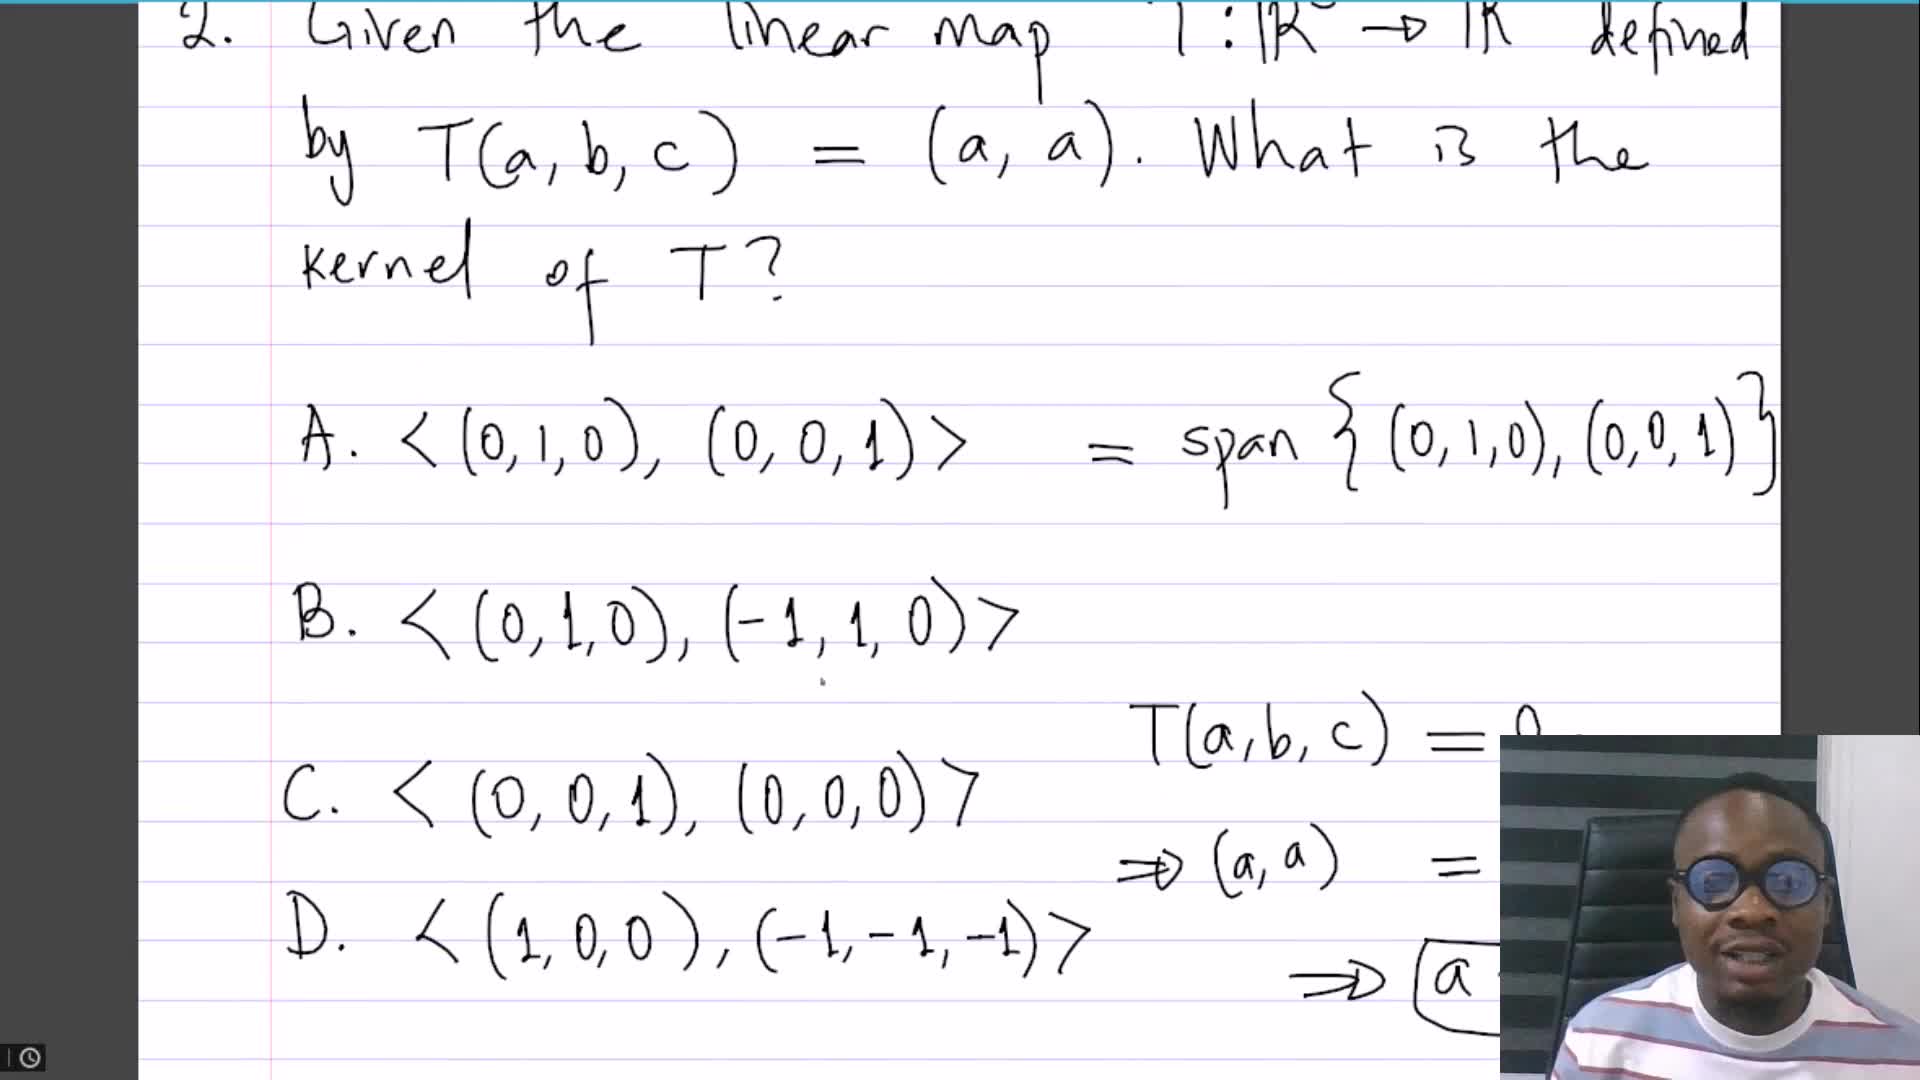 2. Given the linear map T : ℝ → ℝ defined
by T(a, b, c) = (a, a). What is the
kernel of T?
A. < (0, 1, 0), (0, 0, 1) > = span { (0, 1, 0), (0, 0, 1) }
B. < (0, 1, 0), (-1, 1, 0) >
T(a, b, c) = 0
C. < (0, 0, 1), (0, 0, 0) >
⇒ (a, a) =
D. < (1, 0, 0), (-1, -1, -1) >
⇒ a